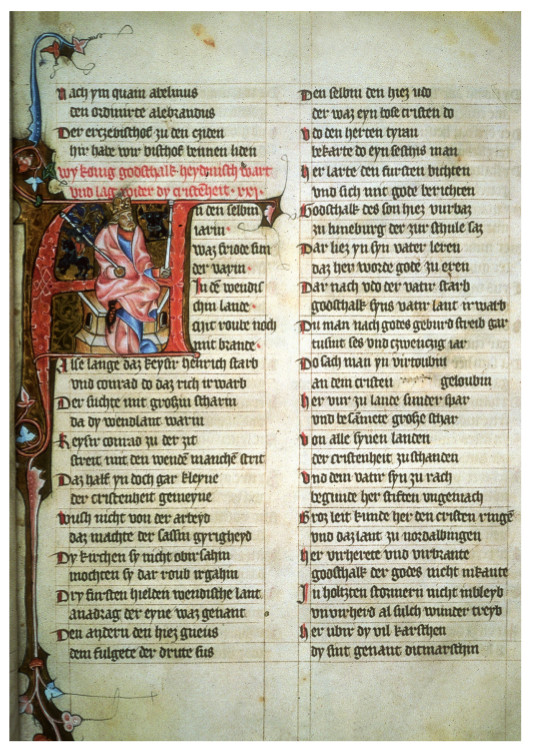 Nach ym quam abelinus
den ordinirte alebrandus
Der erczebischof zu den cziden
hir habe wir bischof bennen liden
wy konig godschalk heydenisch wart
vnd lag wider dy cristēheit · xxj ·
An den selbin
iarin ·
waz friode sun
der varin ·
In dē wendis
chin lande ·
nicht roube noch
mit brande ·
Alse lange daz keysir heinrich starb
vnd conrad do daz rich irwarb
Der suchte mit großin scharin
da dy wendlant warin
Keysir conrad zu der zit
streit mit den wendē manchē strit
Daz half yn doch gar kleyne
der cristenheit gemeyne
wusch nicht von der arteyd
daz machte der sassin gyrigheyd
Dy kirchen sy nicht obir sahin
mochten sy dar roub irgahin
Dry fursten hielden wendische lant
anadrag der eyne waz genant
Den andern den hiez gneus
dem fulgete der dritte sus
Den selbin den hiez udo
der waz eyn bose cristen do
Vo den herren tyran
bekarte do eyn seschis man
her larte den fursten bichten
vnd sich mit gode berichten
Godschalk des son hiez vurbaz
zu luneburg der zur schule saz
Dar liez yn syn vater leren
daz her worde gode zu eren
Dar nach vdo der vatir starb
godschalk syns vatir lant irwarb
Du man nach godes geburd streib gar
tusint ses vnd czwenczig iar
Do sach man yn virtoubin
an dem cristen geloubin
her vur zu lande sunder spar
vnd besāmete große schar
von alle synen landen
der cristenheit zu schanden
vnd dem vatir syn zu rach
begunde her stiften vngemach
Groz leit kunde her den cristen ringē
vnd daz laut zu nordalbingen
her virherete vnd virbrante
godschalk der godes nicht inkante
In holtzten stormern nicht inbleyb
vnvirherd al sulch wunder treyb
her ubir dy vil karschen
dy sint genant ditmarschin